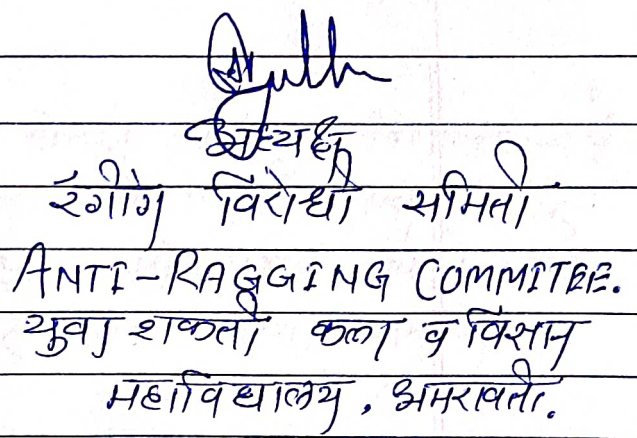 अध्यक्ष
रॅगींग विरोधी समिती
ANTI-RAGGING COMMITEE.
युवा शक्ती कला व विज्ञान
महाविद्यालय, अमरावती.